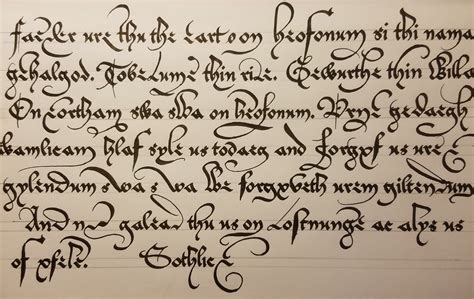 faeder ure thu the eart on heofonum si thi nama
gehalgod. Tobecume thin rice. Gewurthe thin Willa
On eortham swa swa on heofonum. Urne gedaegh
wamlicam hlaf syle us todaeg and forgyf us ure
gylendum swa swa we forgybeth urem giltendum
And ne galead thu us on costnunge ac alys us
of yfele. Sothlice